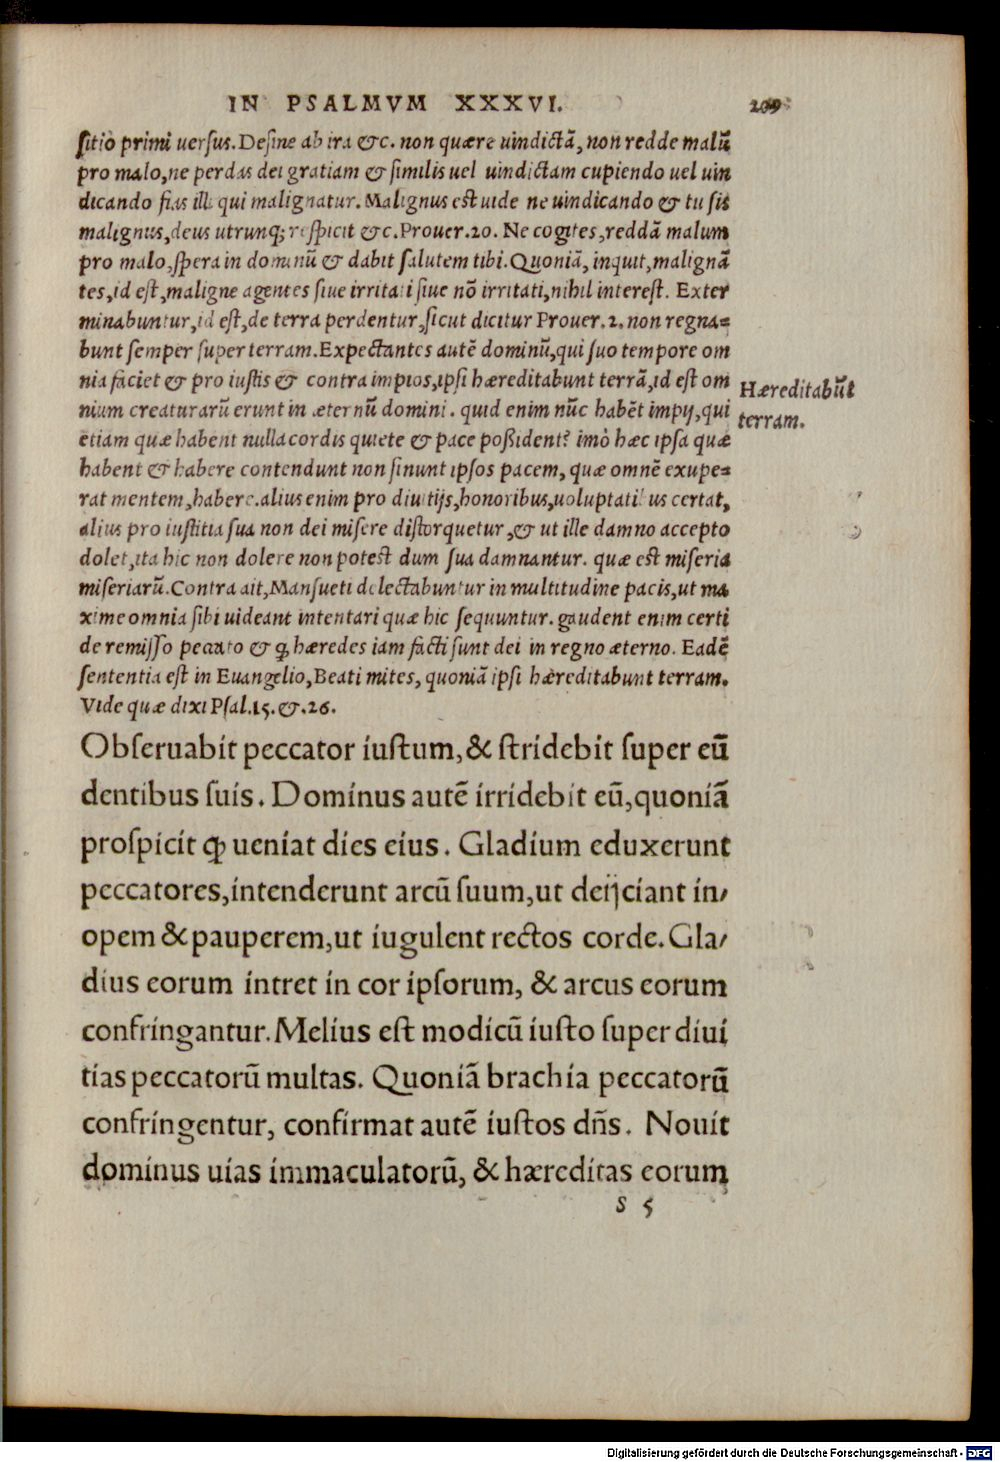 IN PSALMVM XXXVI. 209
sitiò primi uersus. Desine ab ira &c. non quære uindictã, non redde malũ
pro malo, ne perdas dei gratiam & similis uel uindictam cupiendo uel uin
dicando fias illi qui malignatur. Malignus est uide ne uindicando & tu sis
malignus, deus utrunq; respicit &c. Prouer. 20. Ne cogites, reddã malum
pro malo, spera in dominũ & dabit salutem tibi. Quoniã, inquit, malignã
tes, id est, maligne agentes siue irritati siue nõ irritati, nihil interest. Exter
minabuntur, id est, de terra perdentur, sicut dicitur Prouer. 2. non regna=
bunt semper super terram. Expectantes autẽ dominũ, qui suo tempore om
nia faciet & pro iustis & contra impios, ipsi hæreditabunt terrã, id est om
nium creaturarũ erunt in æternũ domini. quid enim nũc habẽt impij, qui
etiam quæ habent nulla cordis quiete & pace poßident? imò hæc ipsa quæ
habent & habere contendunt non sinunt ipsos pacem, quæ omnẽ exupe=
rat mentem, habere. alius enim pro diuitijs, honoribus, uoluptatibus certat,
alius pro iustitia sua non dei misere distorquetur, & ut ille damno accepto
dolet, ita hic non dolere non potest dum sua damnantur. quæ est miseria
miseriarũ. Contra ait, Mansueti delectabuntur in multitudine pacis, ut ma
xime omnia sibi uideant intentari quæ hic sequuntur. gaudent enim certi
de remisso peccato & ꝙ hæredes iam facti sunt dei in regno æterno. Eadẽ
sententia est in Euangelio, Beati mites, quoniã ipsi hæreditabunt terram.
Vide quæ dixi Psal. 15. &. 26.
Hæreditabũt
terram.
Obseruabit peccator iustum, & stridebit super eũ
dentibus suis. Dominus autẽ irridebit eũ, quoniã
prospicit ꝙ ueniat dies eius. Gladium eduxerunt
peccatores, intenderunt arcũ suum, ut deijciant in/
opem & pauperem, ut iugulent rectos corde. Gla/
dius eorum intret in cor ipsorum, & arcus eorum
confringantur. Melius est modicũ iusto super diui
tias peccatorũ multas. Quoniã brachia peccatorũ
confringentur, confirmat autẽ iustos dñs. Nouit
dominus uias immaculatorũ, & hæreditas eorum
s 5
Digitalisierung gefördert durch die Deutsche Forschungsgemeinschaft - DFG